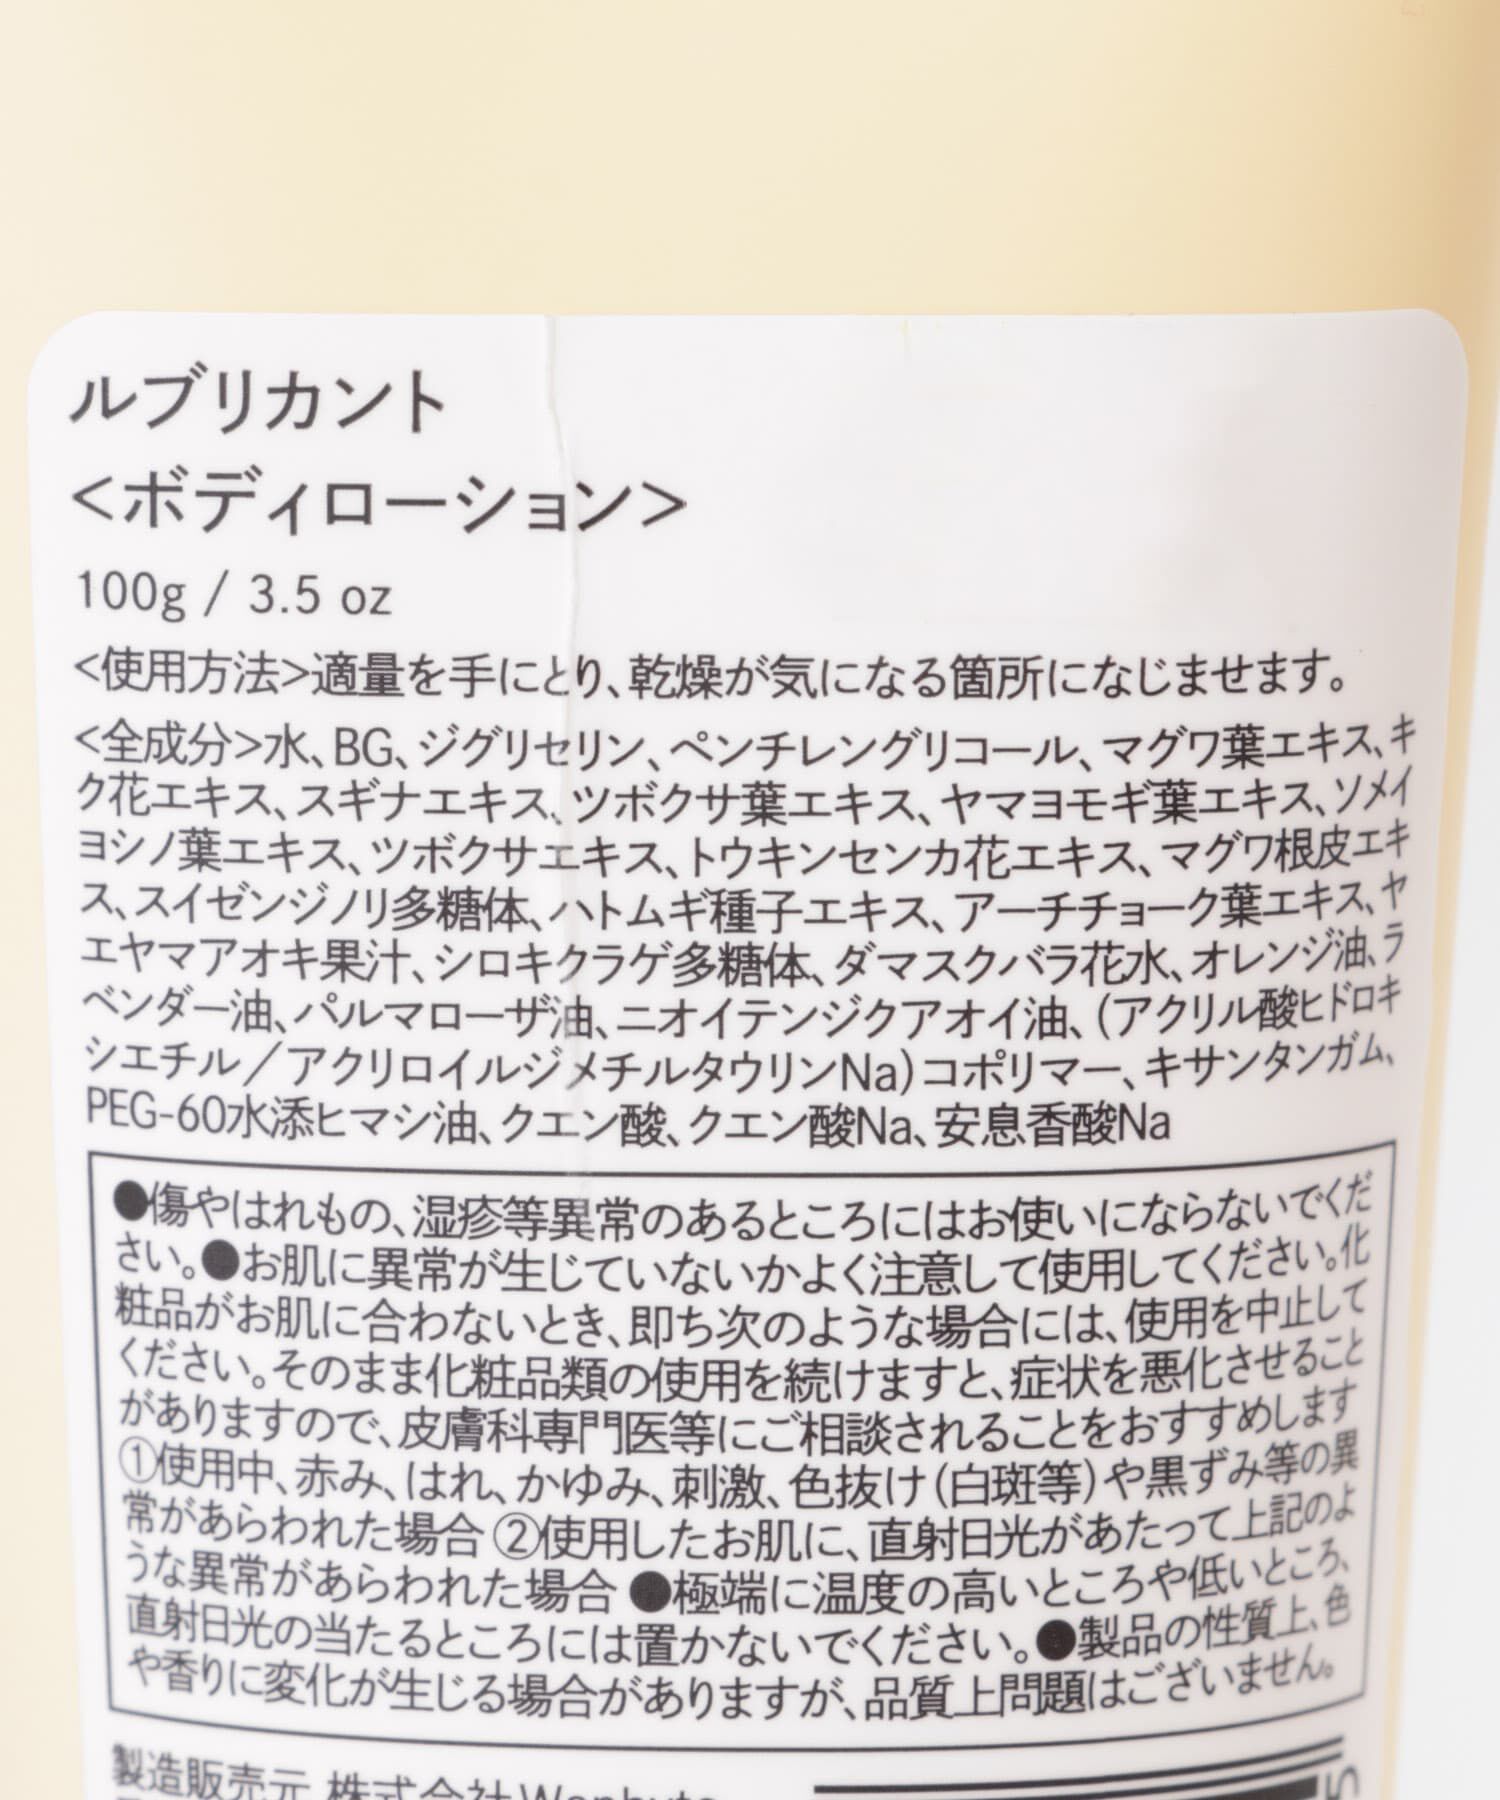 ルブリカント
<ボディローション>
100g / 3.5 oz
<使用方法>適量を手にとり、乾燥が気になる箇所になじませます。
<全成分>水、BG、ジグリセリン、ペンチレングリコール、マグワ葉エキス、キ
ク花エキス、スギナエキス、ツボクサ葉エキス、ヤマヨモギ葉エキス、ソメイ
ヨシノ葉エキス、ツボクサエキス、トウキンセンカ花エキス、マグワ根皮エキ
ス、スイゼンジノリ多糖体、ハトムギ種子エキス、アーチチョーク葉エキス、ヤ
エヤマアオキ果汁、シロキクラゲ多糖体、ダマスクバラ花水、オレンジ油、ラ
ベンダー油、パルマローザ油、ニオイテンジクアオイ油、(アクリル酸ヒドロキ
シエチル/アクリロイルジメチルタウリンNa)コポリマー、キサンタンガム、
PEG-60水添ヒマシ油、クエン酸、クエン酸Na、安息香酸Na
●傷やはれもの、湿疹等異常のあるところにはお使いにならないでくだ
さい。●お肌に異常が生じていないかよく注意して使用してください。化
粧品がお肌に合わないとき、即ち次のような場合には、使用を中止して
ください。そのまま化粧品類の使用を続けますと、症状を悪化させること
がありますので、皮膚科専門医等にご相談されることをおすすめします
①使用中、赤み、はれ、かゆみ、刺激、色抜け(白斑等)や黒ずみ等の異
常があらわれた場合 ②使用したお肌に、直射日光があたって上記のよ
うな異常があらわれた場合 ●極端に温度の高いところや低いところ、
直射日光の当たるところには置かないでください。●製品の性質上、色
や香りに変化が生じる場合がありますが、品質上問題はございません。
製造販売元 株式会社